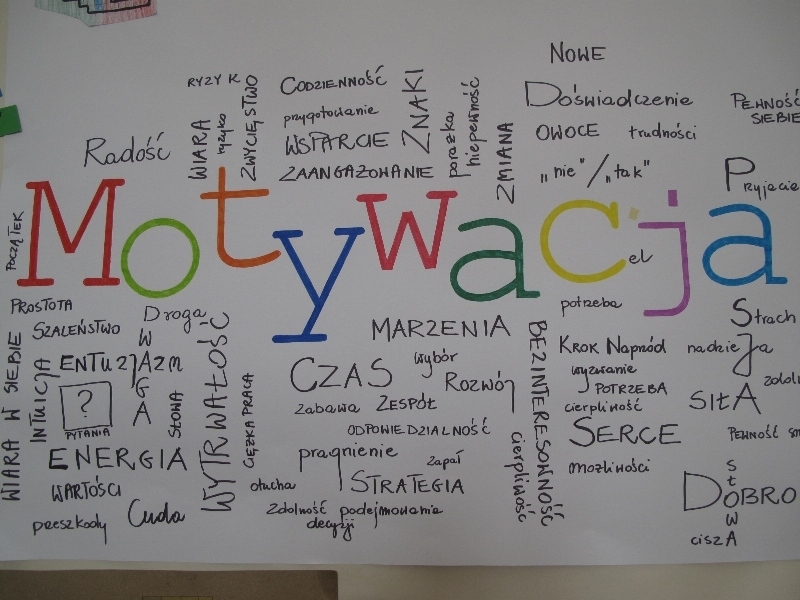 NOWE
RYZYK
CODZIENNOŚĆ
ZNAKI
WIARA
ryzyko
ZWYCIĘSTWO
przygotowanie
porażka
niepewność
Doświadczenie
PEWNOŚĆ
SIEBIE
WSPARCIE
ZMIANA
OWOCE
trudności
Radość
ZAANGAŻOWANIE
„nie"/„tak"
Przyjacie
POCZĄTEK
Motywacja
Cel
PROSTOTA
Droga
potrzeba
Strach
SZALEŃSTWO
MARZENIA
WIARA W SIEBIE
INTUICJA
ENTUZJAZM
ODWAGA
WYTRWAŁOŚĆ
wybór
BEZINTERESOWNOŚĆ
KROK NAPRZÓD
nadzieja
CZAS
Rozwój
wyzwanie
POTRZEBA
?
PYTANIA
SŁOWA
CIĘŻKA PRACA
zabawa
ZESPÓŁ
cierpliwość
SIŁA
ODPOWIEDZIALNOŚĆ
SERCE
PEWNOŚĆ
ENERGIA
pragnienie
zapał
cierpliwość
możliwości
WARTOŚCI
otucha
STRATEGIA
DOBRO
SŁOWA
przeszkody
Cuda
Zdolność podejmowania
decyzji
ciszA